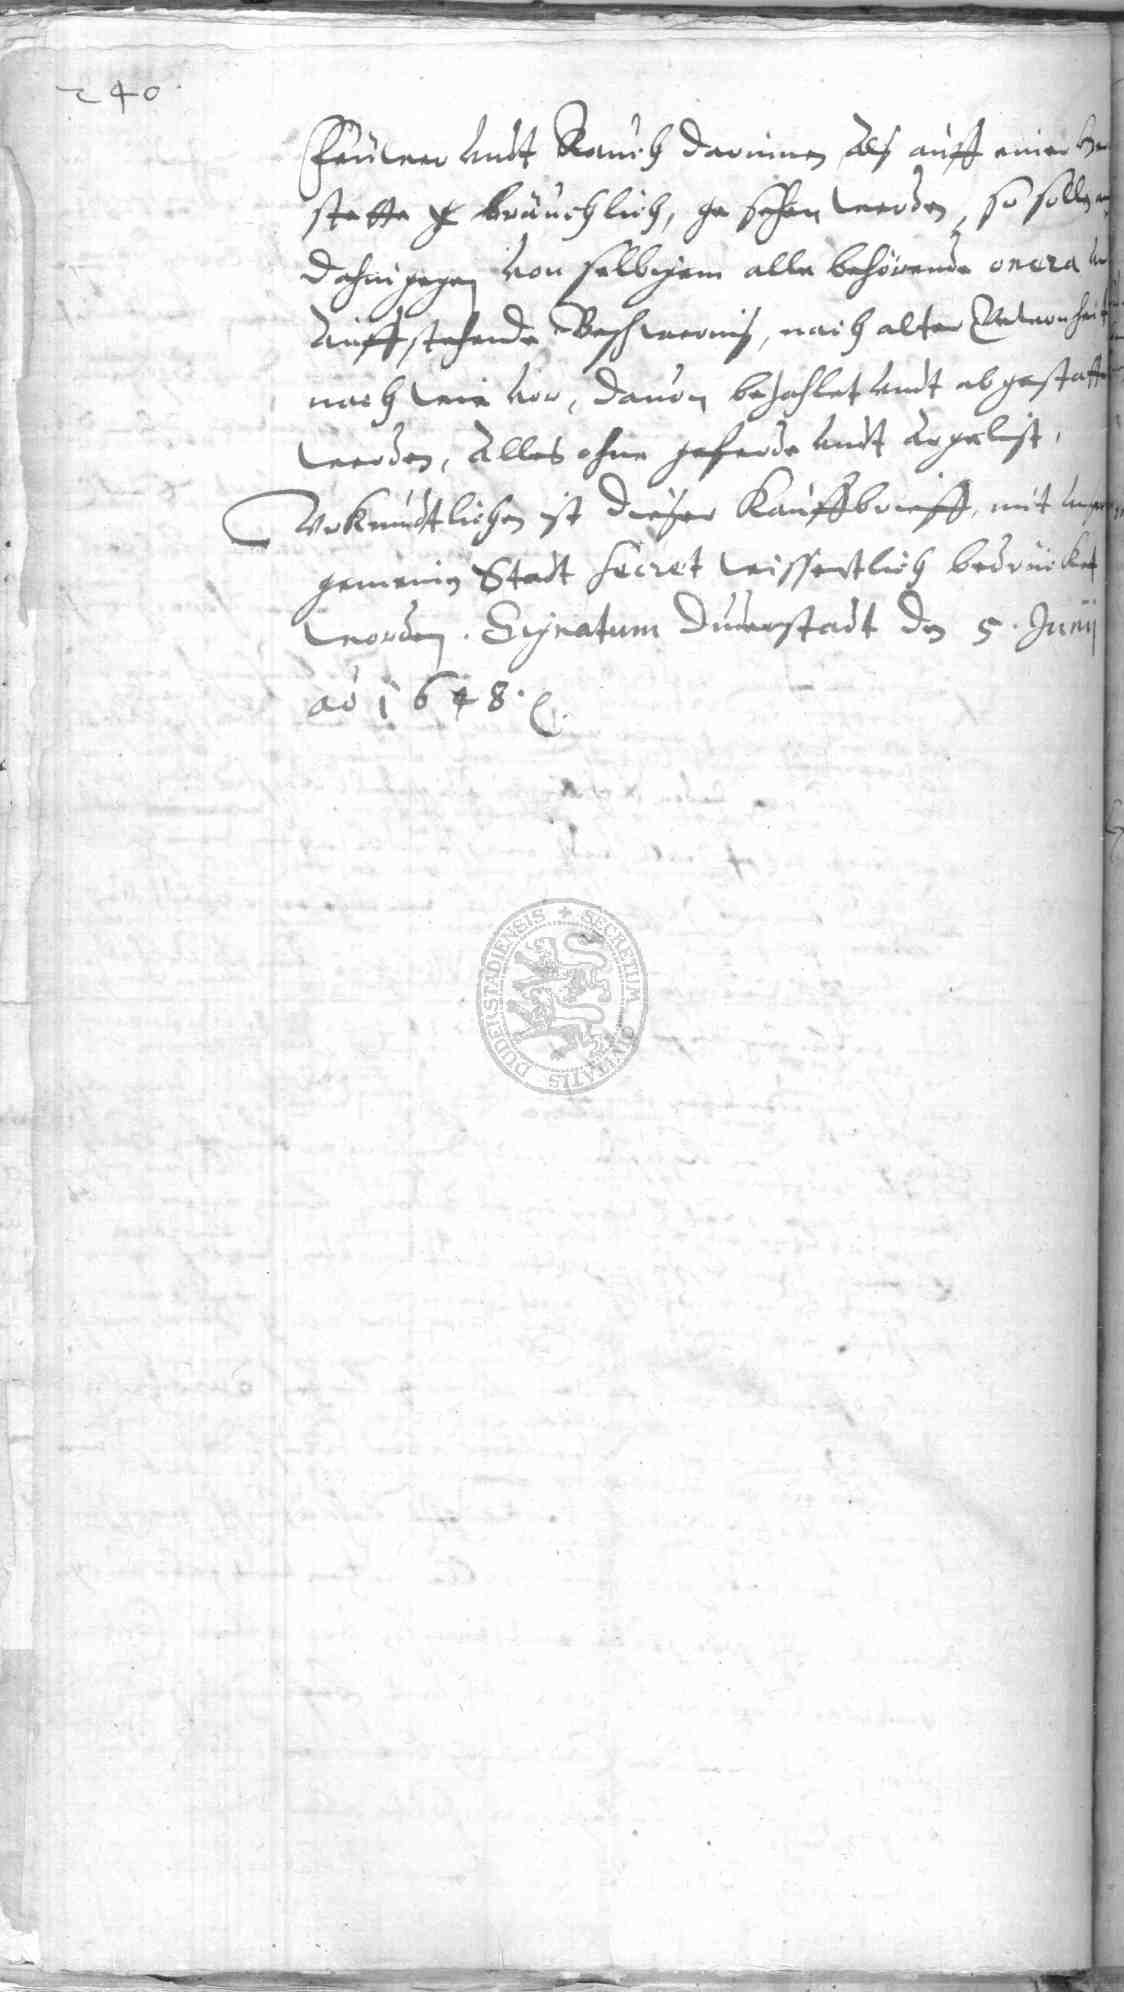 240.
Feuwer undt Rauch darinnen als auff einer
stette gebräuchlich, gesehen werden, so sollen
dahingegen von selbigem alle behörende onera
auffstehende Beschwernis, nach alter Gewonheit
nach wie vor, davon bezahlet undt abgestattet
werden, Alles ohne geferde undt Argelist,
Urkundtlichen ist dieser Kauffbrieff, mit unser
gemeinen Stadt Secret wissentlich bedrücket
worden. Signatum Duderstadt den 5. Junij
ao 1648.
SECRETUM CIVITATIS DUDERSTADIENSIS